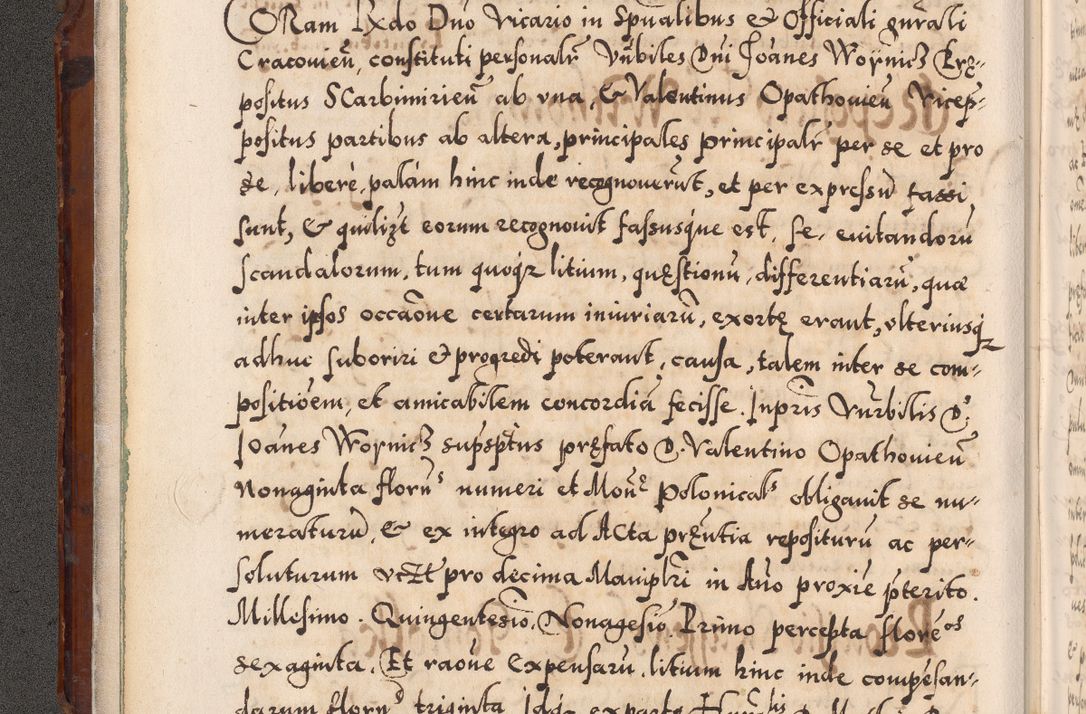 CORam Rxdo Dno Vicario in Spualibus et Officiali gnrali
Cracovieñ, constituti personalr Vnbiles Dni Joanes Woynicz Prę-
positus SCarbimirieñ ab vna, & Valentinus Opathovieñ Vicep-
positus partibus ab altera, principales principalr per se et pro
se, liberè, palàm hinc inde recognoverūt, et per expressū fassi
sunt, & quilizt eorum recognovit fassusque est, se, evitandorū
scandalorum, tum quoqz litium, quęstionū, differentiarū, quæ
inter ipsos occāone certarum iniuriarū, exortę erant, vlteriusqz
adhuc suboriri et progredi poterant, causa, talem inter se com-
positiōem, et amicabilem concordiā fecisse. Inpris Vnrbilis D.
Joānes Woynicz supsptus pręfato D. Valentino Opathovieñ
Nonaginta florns numeri et Mon Polonicals obligavit se nu-
meraturū, & ex integro ad ACta pręntia repositurū ac per-
soluturum vczt pro decima Maniplri in Año proxie pterito.
Millesimo. Quingentesio, Nonagesio Primo percepta floreos
sexaginta. Et raoñe Expensarū. litium hinc inde compesan-
darum florn triginta